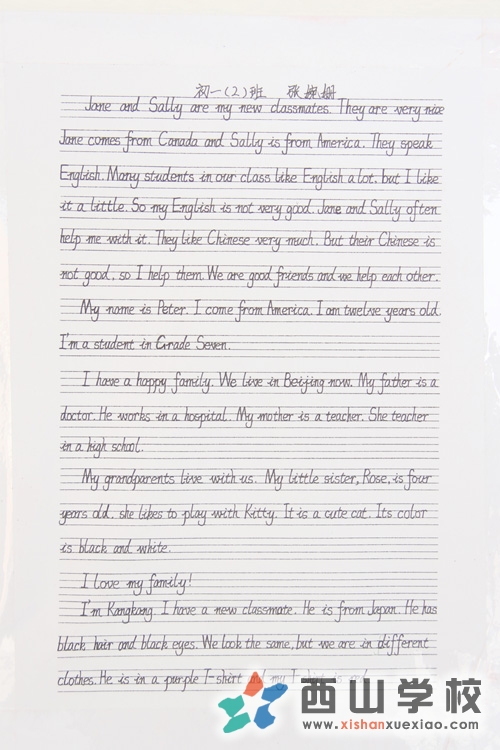 初一(2)班 张婉姗
Jane and Sally are my new classmates. They are very nice
Jane comes from Canada and Sally is from America. They speak
English. Many students in our class like English a lot. but I like
it a little. So my English is not very good. Jane and Sally often
help me with it. They like Chinese very much. But their Chinese is
not good, so I help them. We are good friends and we help each other.
My name is Peter. I come from America. I am twelve years old.
I'm a student in Grade Seven.
I have a happy family. We live in Beijing now. My father is a
doctor. He works in a hospital. My mother is a teacher. She teacher
in a high school.
My grandparents live with us. My little sister, Rose, is four
years old. she likes to play with Kitty. It is a cute cat. Its color
is black and white.
I love my family!
I'm Kangkang. I have a new classmate. He is from Japan. He has
black hair and black eyes. We look the same, but we are in different
clothes. He is in a purple T-shirt and my T-shirt is red.
西山学校
www.xishanxuexiao.com